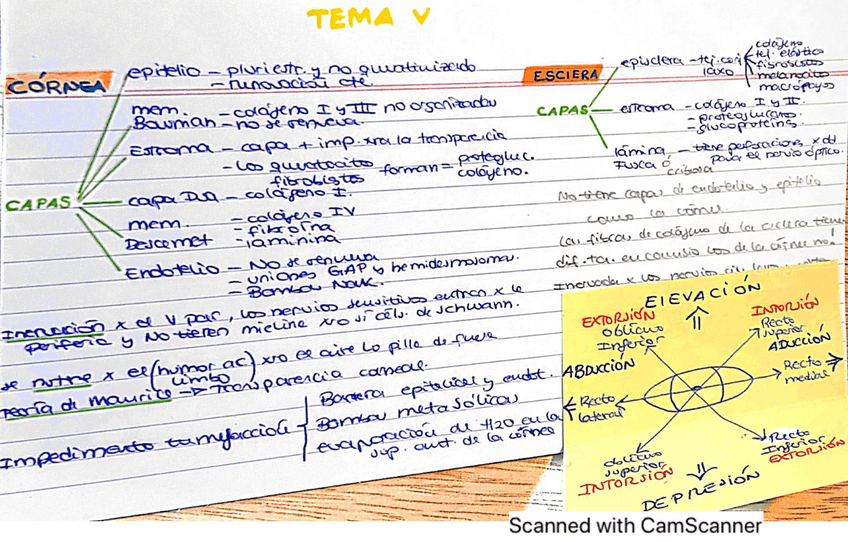 TEMA V
CÓRNEA
CAPAS
epitelio - pluriestr. y no queratinizado
- renovación cte
mem. Bauman - colágeno I y III no organizados
- no se renueva.
Estroma - capa + imp. xra la transparencia
- Los queratocito fibroblastos forman = proteogluc. colágeno.
capa DUA - colágeno I.
mem. Descemet - colágeno IV
- fibrolna
- laminina
Endotelio - No se renueva
- uniones GAP y hemidesmosomas.
- Bombas NaK.
Inervación x el V par, los nervios sensitivos entran x la
periferia y NO tienen mielina xro sí céls. de schwann.
se nutre x el (humor ac) xro el aire lo pilla de fuera
limbo
Teoría de Maurice -> Transparencia corneal.
Impedimento tumefacción
Barrera epitelial y endot.
Bombas metabólicas
evaporación de H2O en la
sup. ant. de la córnea
ESCLERA
CAPAS
episclera - tej. conj laxo
colágeno
tej. elástico
fibroblastos
melanocito
macrófagos
estroma - colágeno I y III.
- proteoglucano.
- glucoproteins.
lámina Fusca ó cribosa - tiene perforaciones x del
para el nervio óptico.
No tiene capas de endotelio y epitelio
como la córnea.
Las fibras de colágeno de la esclera tienen
dif. tam. en cambio los de la córnea no!
Inervada x los nervios
ELEVACIÓN
EXTORSIÓN
Oblicuo Inferior
INTORSIÓN
Recto superior
ADUCCIÓN
ABDUCCIÓN
Recto medial
Recto lateral
oblicuo superior
INTORSIÓN
Recto Inferior
EXTORSIÓN
DEPRESIÓN
Scanned with CamScanner